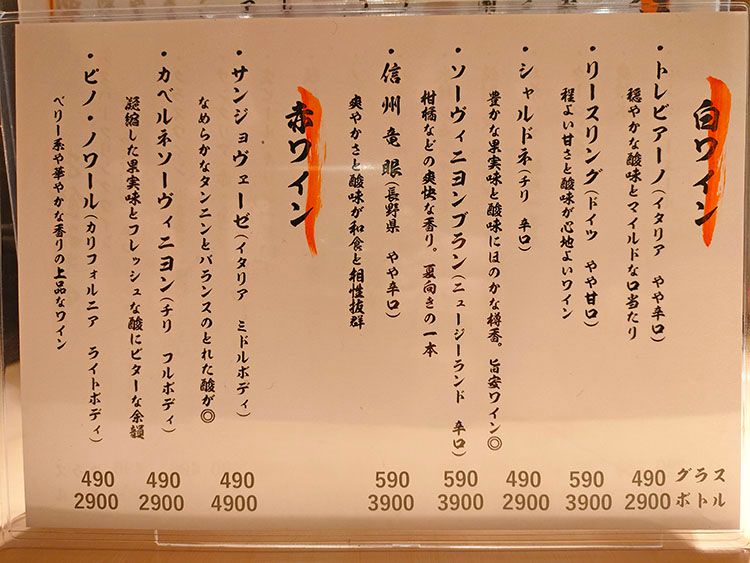 白ワイン
・トレビアーノ(イタリア やや辛口)
穏やかな酸味とマイルドな口当たり
・リースリング(ドイツ やや甘口)
程よい甘さと酸味が心地よいワイン
・シャルドネ(チリ 辛口)
豊かな果実味と酸味にほのかな樽香。旨安ワイン◎
・ソーヴィニヨンブラン(ニュージーランド 辛口)
柑橘などの爽快な香り。夏向きの一本
・信州竜眼(長野県 やや辛口)
爽やかさと酸味が和食と相性抜群
赤ワイン
・サンジョヴェーゼ(イタリア ミドルボディ)
なめらかなタンニンとバランスのとれた酸が◎
・カベルネソーヴィニヨン(チリ フルボディ)
凝縮した果実味とフレッシュな酸にビターな余韻
・ピノ・ノワール(カリフォルニア ライトボディ)
ベリー系や華やかな香りの上品なワイン
グラス 490 590 490 590 590 490 490 490
ボトル 2900 3900 2900 3900 3900 4900 2900 2900